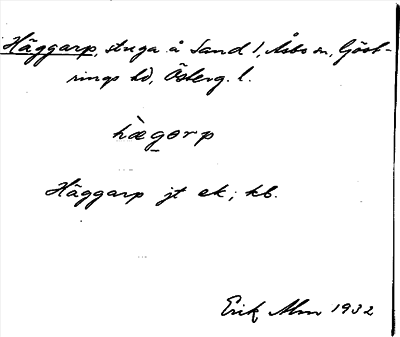 Häggarp, stuga å Sand 1, Åsbo sn, Göst-
rings hd, Österg. l.
hægarp
Häggarp jt ek; kb.
Erik Alm 1932